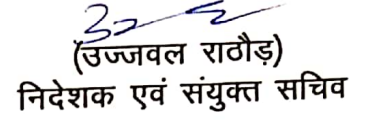 (उज्जवल राठौड़)
निदेशक एवं संयुक्त सचिव